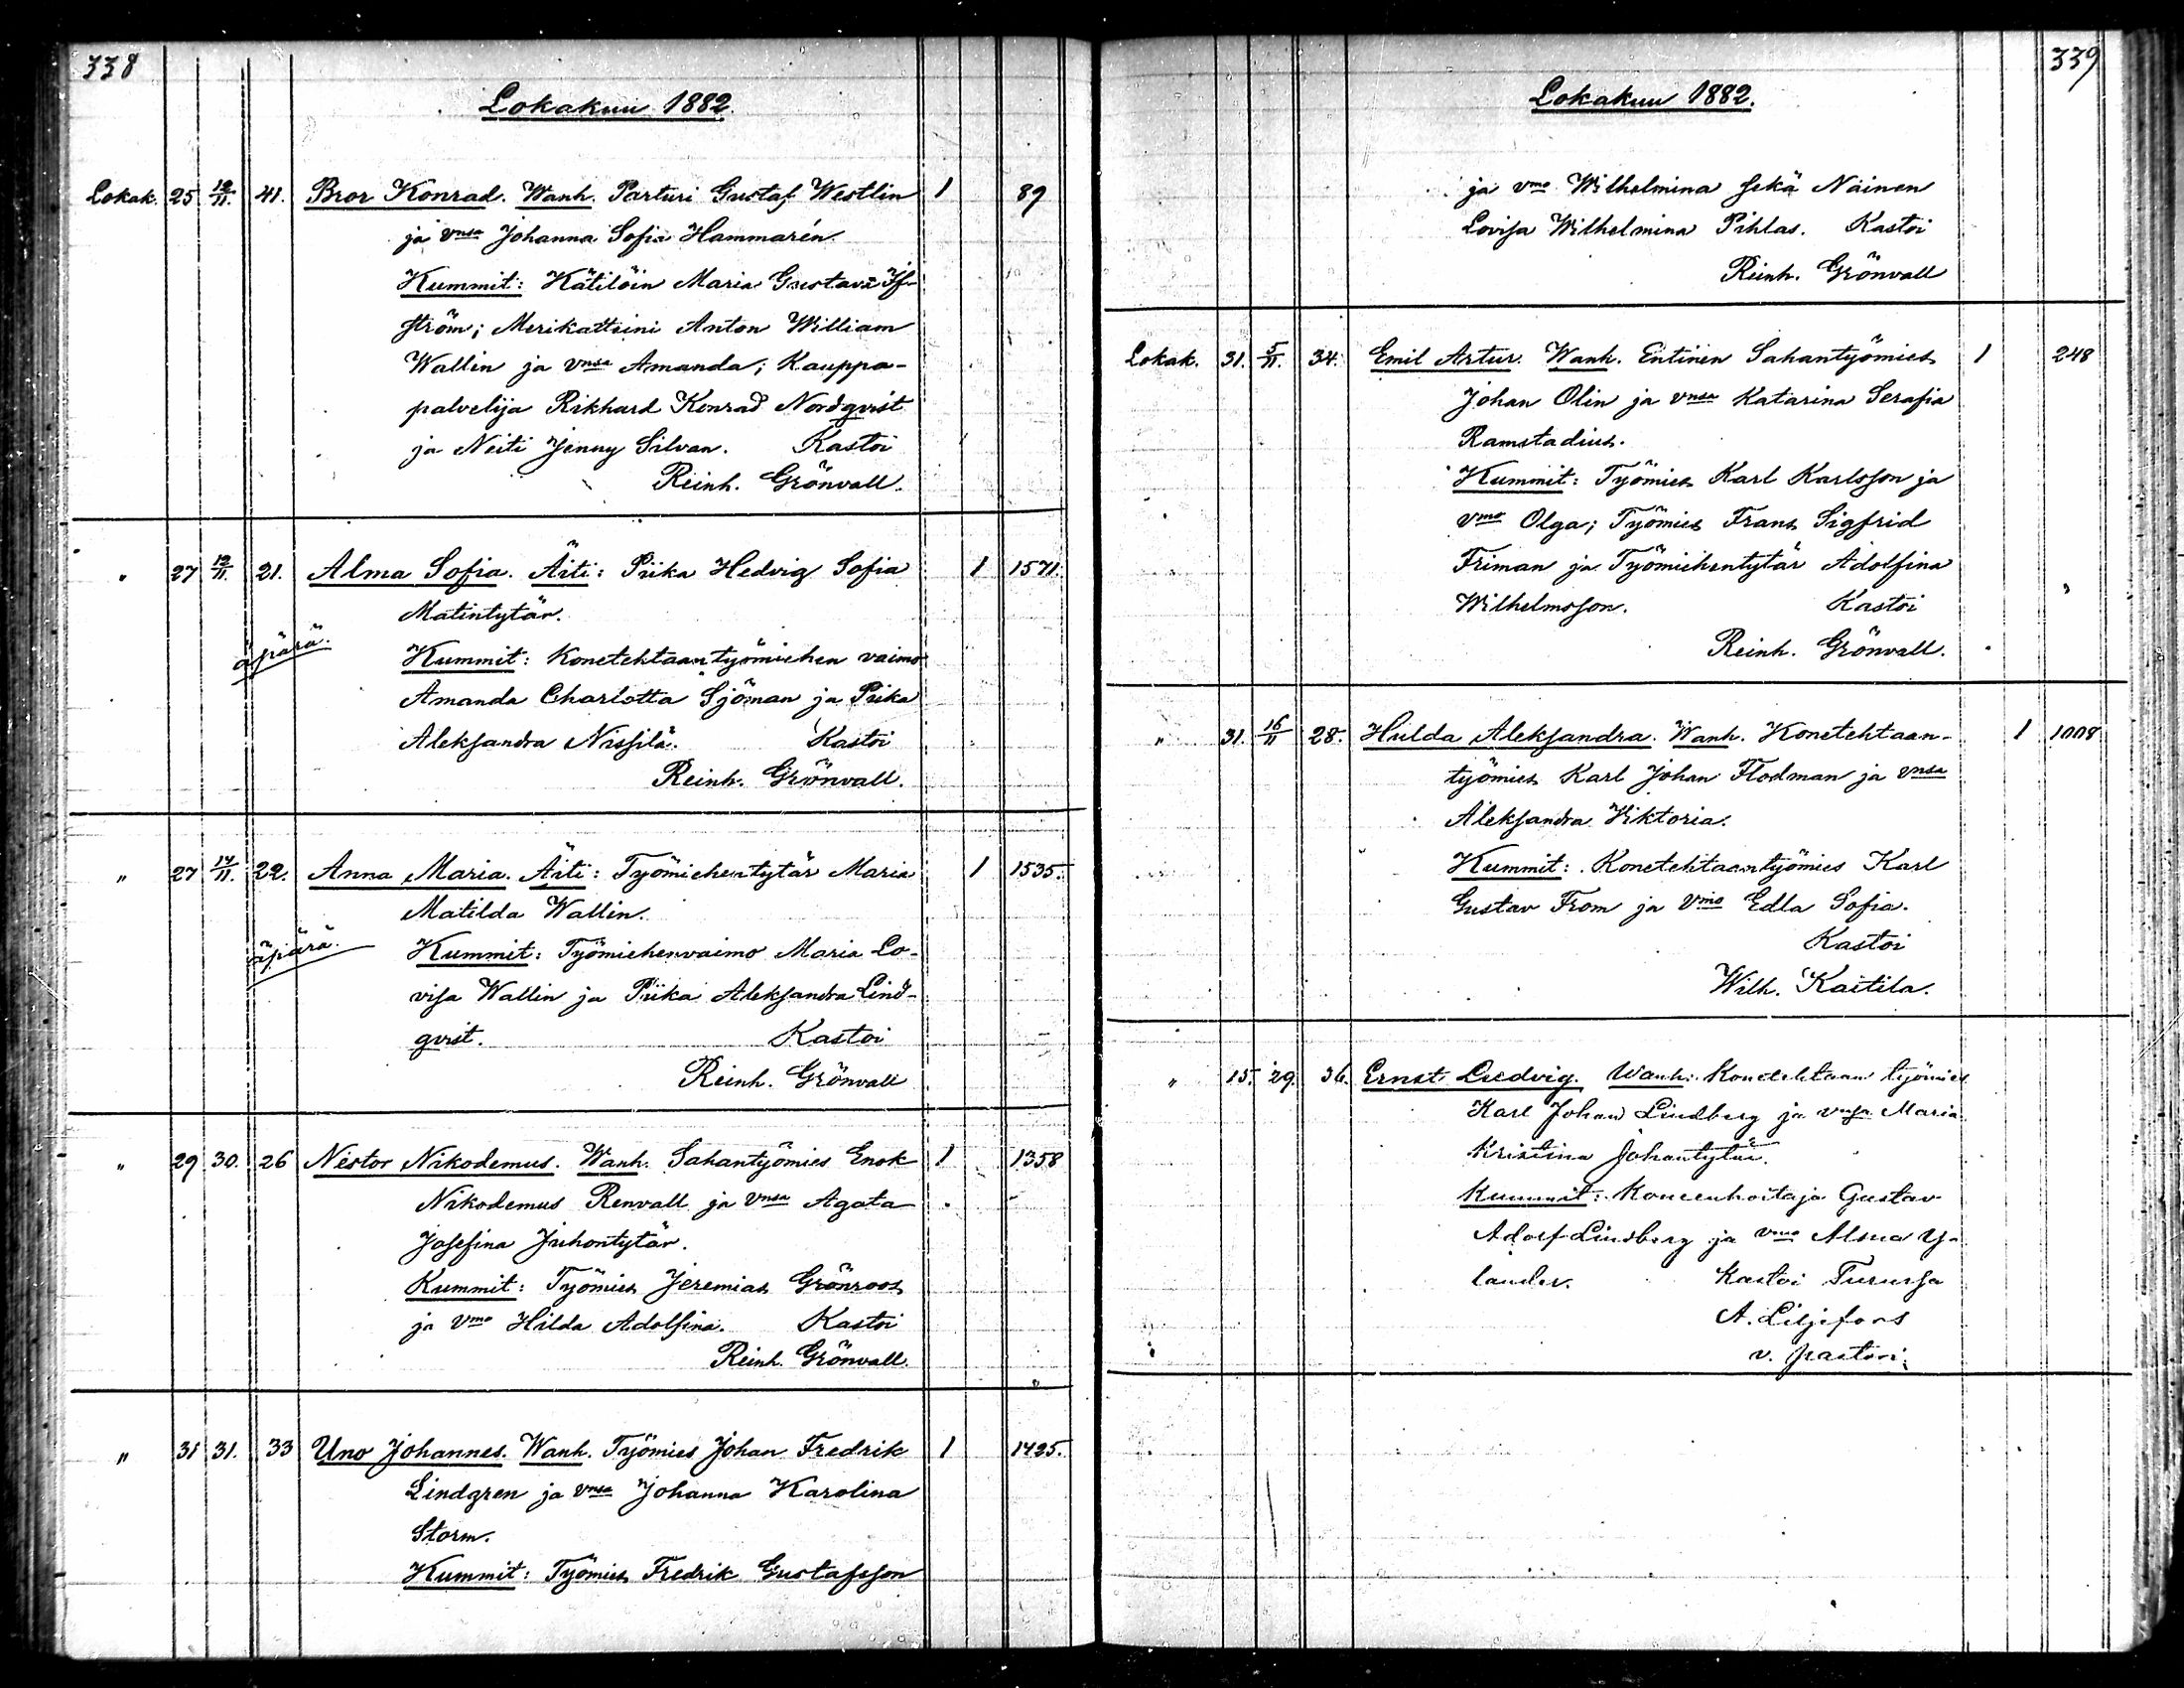 338
Lokakuu 1882.
Lokak. 25 12/11. 41. Bror Konrad. Wanh. Parturi Gustaf Westlin 1 89
ja vnsa Johanna Sofia Hammarén.
Kummit: Kätilöin Maria Gustava
ström; Merikatteini Anton William
Wallin ja vnsa Amanda; Kauppa-
palvelija Rikhard Konrad Nordqvist
ja Neiti Jenny Silvan. Kastoi
Reinh. Grönvall.
" 27 12/11. 21. Alma Sofia. Äiti: Piika Hedvig Sofia 1 1571.
Matintytär.
äpärä.
Kummit: Konetehtaantyömiehen vaimo
Amanda Charlotta Sjöman ja Piika
Aleksandra Nissilä. Kastoi
Reinh. Grönvall.
" 27 14/11. 22. Anna Maria. Äiti: Työmiehentytär Maria 1 1535.
Matilda Wallin.
äpärä.
Kummit: Työmiehenvaimo Maria Lo-
visa Wallin ja Piika Aleksandra Lind-
qvist. Kastoi
Reinh. Grönvall
" 29 30. 26 Nestor Nikodemus. Wanh. Sahantyömies Enok 1 1358
Nikodemus Renvall ja vnsa Agata
Josefina Juhontytär.
Kummit: Työmies Jeremias Grönroos
ja vmo Hilda Adolfina. Kastoi
Reinh. Grönvall.
" 31 31. 33 Uno Johannes. Wanh. Työmies Johan Fredrik 1 1425.
Lindgren ja vnsa Johanna Karolina
Storm.
Kummit: Työmies Fredrik Gustafsson
339
Lokakuu 1882.
ja vmo Wilhelmina sekä Nainen
Lovisa Wilhelmina Pihlas. Kastoi
Reinh. Grönvall
Lokak. 31. 5/11. 34. Emil Artur. Wanh. Entinen Sahantyömies 1 248
Johan Olin ja vnsa Katarina Serafia
Ramstadius.
Kummit: Työmies Karl Karlsson ja
vmo Olga; Työmies Frans Sigfrid
Friman ja Työmiehentytär Adolfina
Wilhelmsson. Kastoi
Reinh. Grönvall.
" 31. 16/11 28. Hulda Aleksandra. Wanh. Konetehtaan- 1 1008
työmies Karl Johan Flodman ja vnsa
Aleksandra Viktoria.
Kummit: Konetehtaantyömies Karl
Gustav From ja vmo Edla Sofia.
Kastoi
Wilh. Kaitila.
" 15. 29. 36. Ernst Ludvig. Wanh: Konetehtaan työmies
Karl Johan Lindberg ja vnsa Maria
Kristina Johantytär.
Kummit: Koneenhoitaja Gustav
Adolf Lindberg ja vmo Alma Y-
lander. Kastoi Turussa
A. Liljefors
v. pastori.